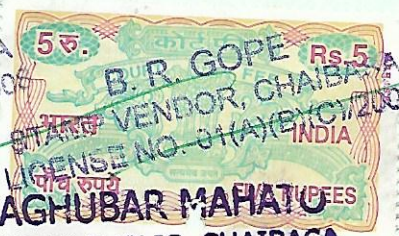 5 रु. कोर्ट फी Rs.5
COURT FEE
B. R. GOPE
STAMP VENDOR, CHAIBASA
LICENSE NO. 01(A)(B)(C)/200
भारत INDIA
पाँच रुपये FIVE RUPEES
AGHUBAR MAHATO
CHAIBASA